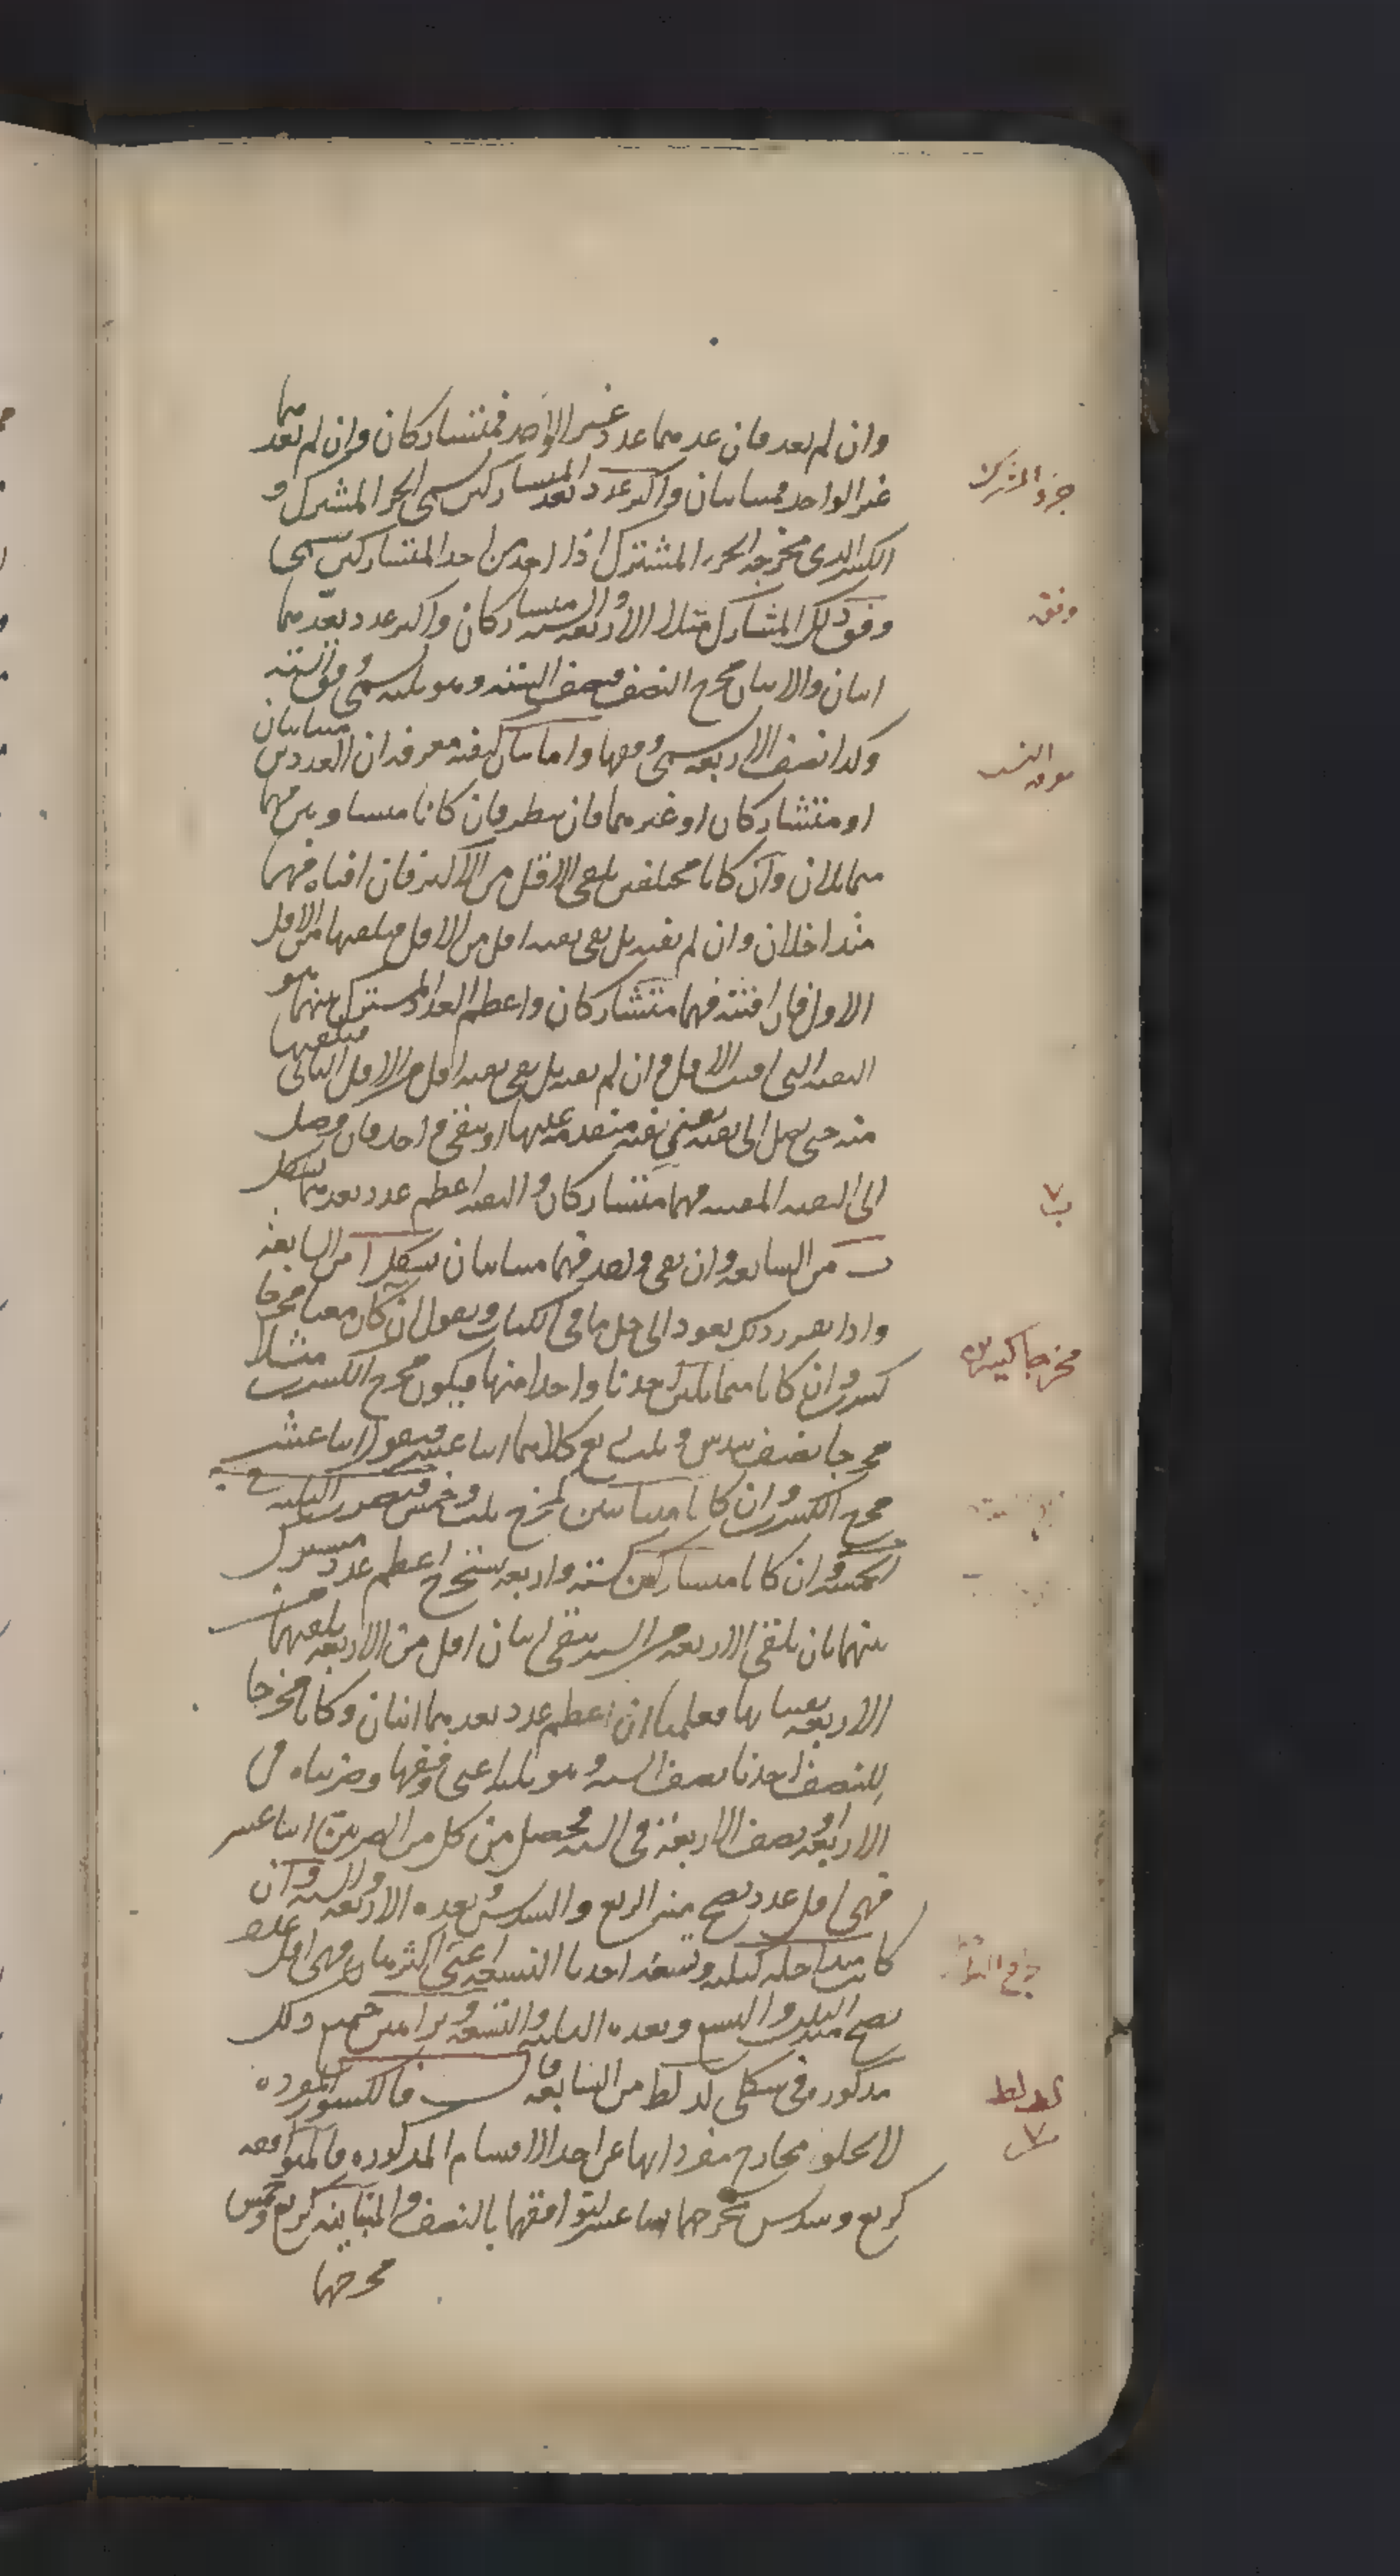 وان لم يعد فان عدهما عدد غير الواحد فمتشاركان وان لم يعدهما
غير الواحد فمتباينان واكبر عدد يعد المتشاركين يسمى الجزء المشترك و
الكسر الذي مخرجه الجزء المشترك اذا اخذ من احد المتشاركين يسمى
وفق ذلك المشارك مثلا الاربعة والستة متشاركان واكبر عدد يعدهما
اثنان والاثنان مخرج النصف فنصف الستة وهو ثلثة يسمى وفق الستة
وكذا نصف الاربعة يسمى وفقها واما بيان كيفية معرفة ان العددين متباينان
او متشاركان او غيرهما فان ينظر فان كانا متساويين فهما
متماثلان وان كانا مختلفين يلقى الاقل من الاكثر فان افناه فهما
متداخلان وان لم يفنه بل بقى بقية اقل من الاقل فيلقيها من الاقل
الاول فان افنته فهما متشاركان واعظم العدد المشترك بينهما هو
البقية التي افنت الاقل وان لم يفنه بل بقى بقية اقل من الاقل الثاني فيلقيها
منه حتى يصل الى بقية يفنى بقية متقدمة عليها او يبقى واحد فان وصل
الى البقية المفنية فهما متشاركان والبقية اعظم عدد يعدهما بشكل
ب من السابعة وان بقى واحد فهما متباينان بشكل ا من السابعة
واذا تقرر ذلك نعود الى حل ما في الكتاب ونقول ان كان معنا مخرجا
كسرين وان كانا متماثلين اخذنا واحدا منهما فيكون مخرج الكسرين مثلا
مخرجا نصف سدس وثلث ربع كلاهما اثنا عشر فنقول اثنا عشر
مخرج الكسرين وان كانا متباينين كمخرج ثلث وخمس فنضرب الثلثة في
الخمسة وان كانا متشاركين كستة واربعة نستخرج اعظم عدد مشترك
بينهما بان نلقى الاربعة من الستة يبقى اثنان اقل من الاربعة نلقيهما من
الاربعة يفنيانها فعلمنا ان اعظم عدد يعدهما اثنان وكانا مخرجا
للنصف اخذنا نصف الستة وهو ثلثة اعنى وفقها وضربناه في
الاربعة او نصف الاربعة في الستة فحصل من كل من الضربين اثنا عشر
فهي اقل عدد يصح منه الربع والسدس ويعده الاربعة والستة وان
كانت متداخلة كثلثة وتسعة اخذنا التسعة اعنى اكثرهما فهي اقل عدد
يصح منه الثلث والتسع ويعده الثلثة والتسعة وبراهين جميع ذلك
مذكورة في شكلى لد لط من السابعة قال فالكسور المفردة
لا يخلو مخارج مفرداتها عن احد الاقسام المذكورة فالمتوافقة
كربع وسدس مخرجهما اثنا عشر لتوافقهما بالنصف والمتباينة كربع وخمس
مخرجهما
جزء المشترك
وفقه
معرفة النسب
ب ٧
مخرجا كسرين
لد لط
٧